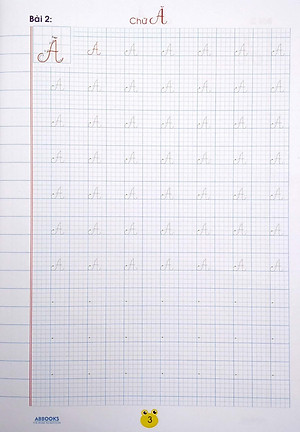 Bài 2: Chữ Ă
Ă Ă Ă Ă Ă Ă Ă
Ă Ă Ă Ă Ă Ă Ă
Ă Ă Ă Ă Ă Ă Ă
Ă Ă Ă Ă Ă Ă Ă
Ă Ă Ă Ă Ă Ă Ă
Ă Ă Ă Ă Ă Ă Ă
Ă Ă Ă Ă Ă Ă Ă
ABBOOKS 3